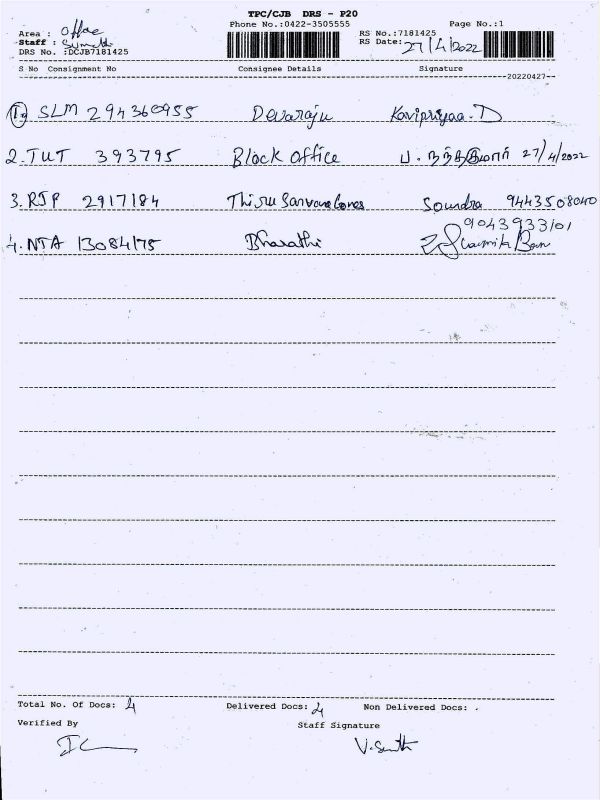 TPC/CJB DRS - P20
Phone No.:0422-3505555 Page No.:1
Area : Office RS No.:7181425
Staff : RS Date: 27/4/2022
DRS No. :DCJB7181425
S No Consignment No Consignee Details Signature
--20220427--
1. SLM 294360955 Devaraju Kavipriyaa. D
2. TUT 393795 Block Office 27/4/2022
3. RJP 2917184 Thiru Soundra 9443508040
4. NTA 13084175 Bharathi 9043933101
Total No. Of Docs: 4 Delivered Docs: 4 Non Delivered Docs: .
Verified By Staff Signature